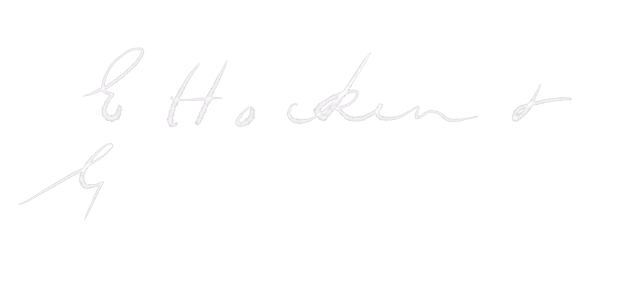 E Hocken &
G